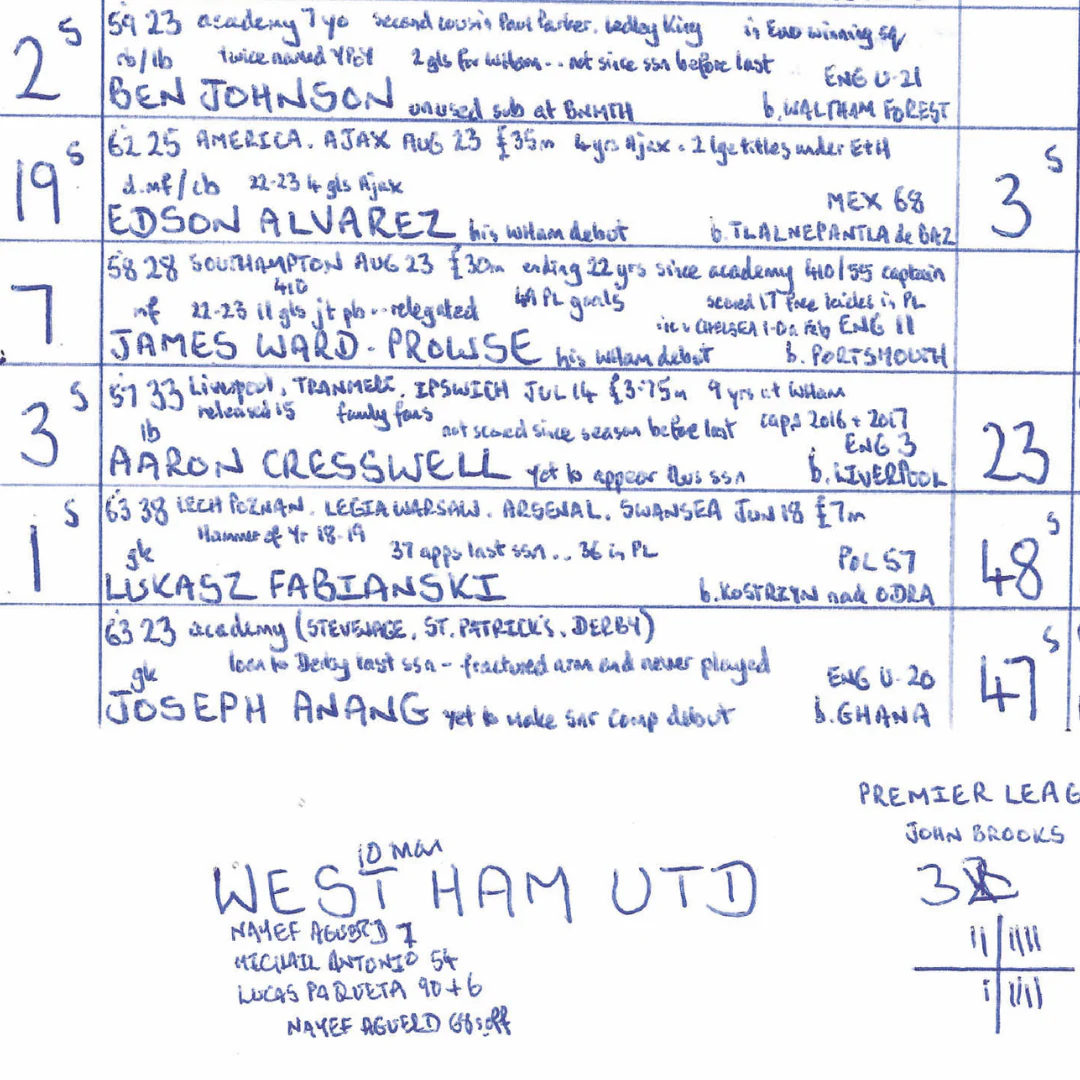 2 S
59 23 academy 7 yo second cousin Paul Parker. Ledley King in Euro winning sq
cb/lb twice named YPOY 2 gls for WHam.. not since ssn before last ENG U-21
BEN JOHNSON unused sub at BNMTH b. WALTHAM FOREST
19 S
62 25 AMERICA. AJAX AUG 23 £35m 4 yrs Ajax. 2 lge titles under EtH
d.mf/cb 22-23 4 gls Ajax MEX 68
EDSON ALVAREZ his WHam debut b. TLALNEPANTLA de BAZ
3 S
7
58 28 SOUTHAMPTON AUG 23 £30m ending 22 yrs since academy 410/55 captain
410
mf 22-23 11 gls jt pb.. relegated 49 PL goals scored 17 free kicks in PL
inc v CHELSEA 1-0 in Feb ENG 11
JAMES WARD-PROWSE his WHam debut b. PORTSMOUTH
3 S
57 33 Liverpool, TRANMERE, IPSWICH JUL 14 £3.75m 9 yrs at WHam
released 15 family fans
not scored since season before last caps 2016 + 2017
lb ENG 3
AARON CRESSWELL yet to appear this ssn b. LIVERPOOL
23
1 S
63 38 LECH POZNAN. LEGIA WARSAW. ARSENAL. SWANSEA JUN 18 £7m
Hammer of Yr 18-19
gk 37 apps last ssn... 36 in PL POL 57
LUKASZ FABIANSKI b. KOSTRZYN nad ODRA
48 S
63 23 academy (STEVENAGE, ST. PATRICK'S, DERBY)
loan to Derby last ssn - fractured arm and never played
gk ENG U-20
JOSEPH ANANG yet to make snr comp debut b. GHANA
47 S
PREMIER LEAG
JOHN BROOKS
10 Man
WEST HAM UTD
3
NAYEF AGUERD 7
MICHAIL ANTONIO 54
LUCAS PAQUETA 90+6
NAYEF AGUERD 68 s.off